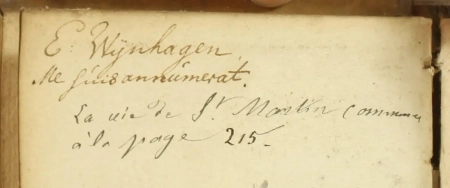 E. Wÿnhagen
Me suis annumerat.
La vie de St Martin commence
à la page 215.